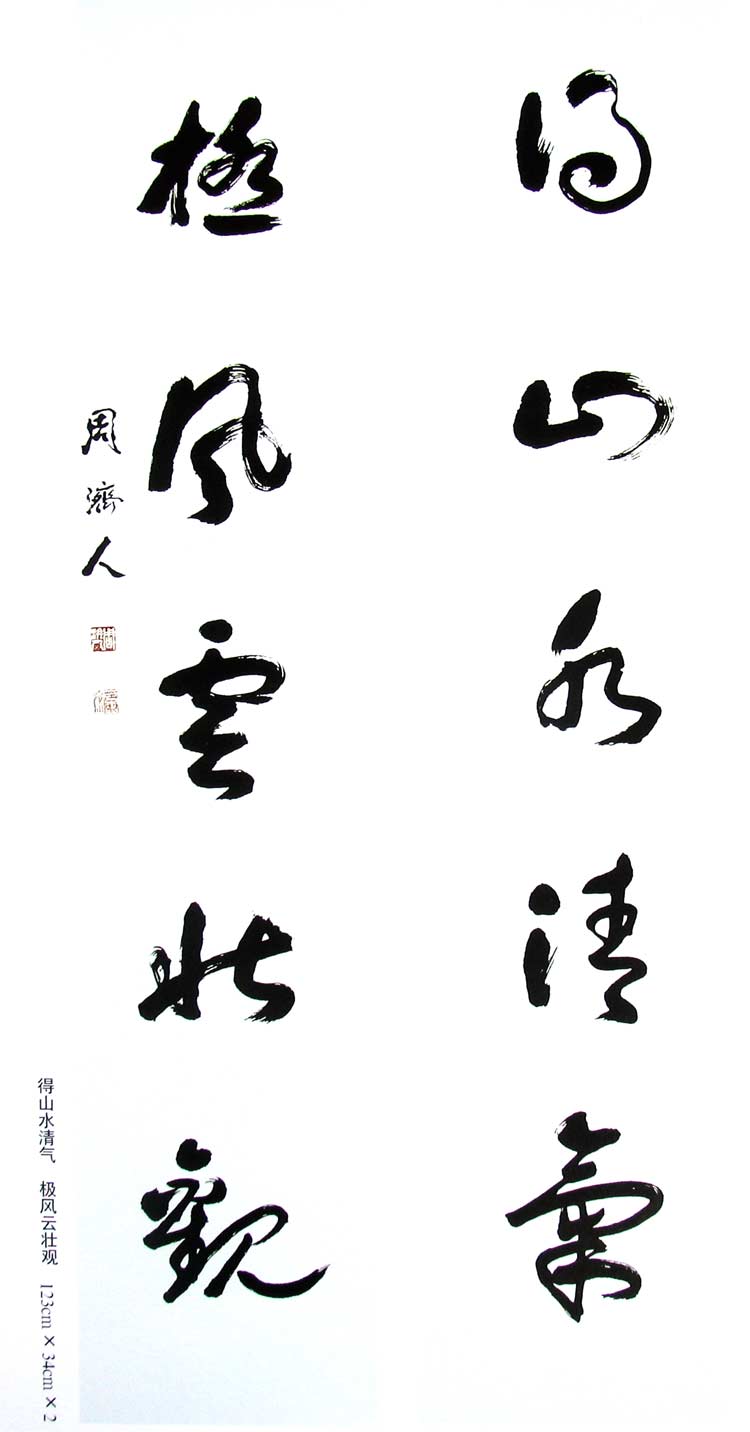 得山水清氣
極風雲壯觀
周濟人
得山水清气 极风云壮观 123cm×34cm×2